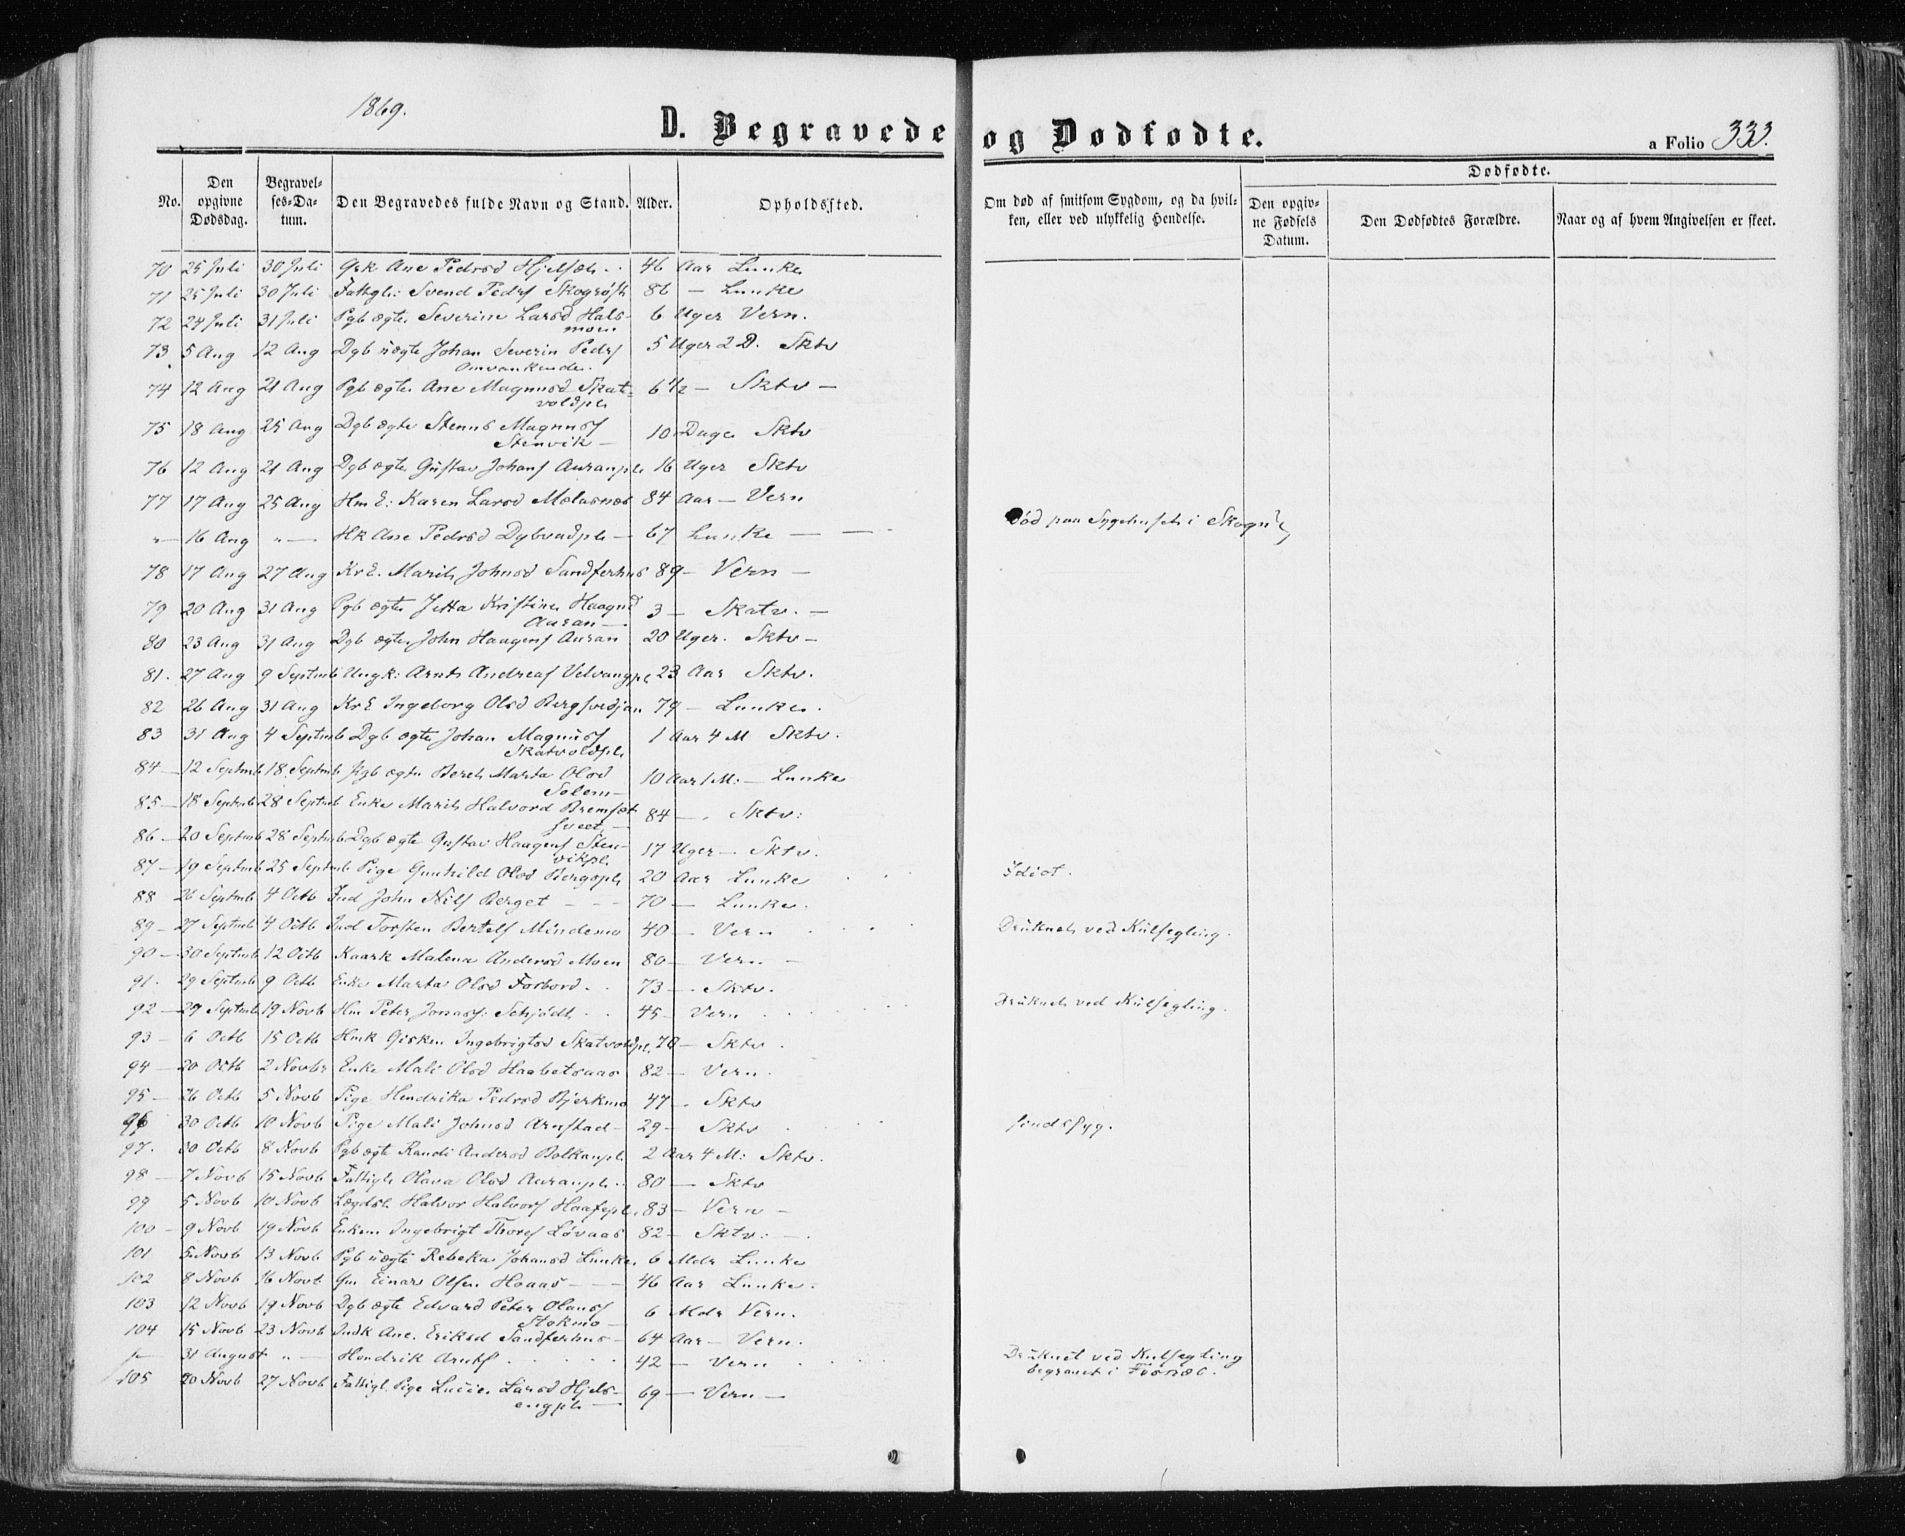 1869.
D. Begravede og Dødfødte.
a Folio 333.
No.
Den opgivne Dødsdag.
Begravelses-Datum.
Den Begravedes fulde Navn og Stand.
Alder.
Opholdssted.
Om død af smitsom Sygdom, og da hvilken, eller ved ulykkelig Hendelse.
Dødfødte.
Den opgivne Fødsels Datum.
Den Dødfødtes Forældre.
Naar og af hvem Angivelsen er skeet.
70 25 Juli 30 Juli Gsk Ane Pedrsd 46 Aar Lunke
71 25 Juli 30 Juli Svend Pedrs 86 — Lunke
72 24 Juli 31 Juli Pgb ægte Severine Larsd Hals-
moen 6 Uger Vern.
73 5 Aug 12 Aug Dgb uægte Johan Severin Pedrs 5 Uger 2 D. Sktv
Omvankende.
74 12 Aug 21 Aug Pgb ægte Ane Magnusd Skat-
voldpl. 6 1/2 — Sktv —
75 18 Aug 25 Aug Dgb ægte Magnus
Stenvik — 10 Dage Sktv
76 12 Aug 21 Aug Dgb ægte Gustav Johans Auranpl. 16 Uger Sktv
77 17 Aug 25 Aug Hm E: Karen Larsd 84 Aar — Vern
"— 16 Aug "— Hk Ane Pedrsd Dybvadpl — 67 Lunke — — Død paa Sygehuset i Skogn
78 17 Aug 27 Aug Kr E. Marit Johnsd Sandferhus 89 — Vern —
79 20 Aug 31 Aug Pgb ægte Jetta Kristine Haagnd
Auran — 3 — Skatv. —
80 23 Aug 31 Aug Dgb ægte John Haagens Auran 20 Uger. Sktv —
81. 27 Aug 9 Septmb Ungk: Arnt Andreas Velvangpl. 23 Aar Sktv.
82 26 Aug 31 Aug Kr E Ingeborg Olsd 79 — Lunke.
83 31 Aug 4 Septmb Dgb ægte Johan Magnus
Skatvoldpl. 1 Aar 4 M Sktv.
84 — 12 Septmb 18 Septmb Pgb ægte Beret Marta Olsd
Solem — 10 Aar 1 M: — Lunke
85 — 18 Septmb 28 Septmb Enke Marit Halvord 84 —. Sktv:
86 — 20 Septmb 28 Septmb Dgb ægte Gustav Haagens Sten-
vikpl. 17 Uger — Sktv.
87 — 19 Septmb 25 Septmb Pige Gunhild Olsd Bergspl 20 Aar Lunke Idiot.
88 26 Septmb 4 Octb Ind John Nils Berget — — 70 — Lunke.
89 — 27 Septmb 4 Octb Ind Torsten Bertels Mindemo 40 — Vern Druknet ved Kulsegling.
90 — 30 Septmb 12 Octb Kaark Malena Andersd Moen 80 — Vern —
91. 29 Septmb 9 Octb Enke Marta Olsd Forbord 73 — Sktv.
92 — 29 Septmb 19 Novb Hm Peter Jonas: Schjødt 45 — Vern Druknet ved Kulsegling.
93 — 6 Octb 15 Octb Hmk Gisken Ingebrigtsd Skatvoldpl. 70 — Sktv.
94 — 20 Octb 2 Novbr Enke Mali Olsd Haabetsaas 82 — Vern.
95 — 26 Octb 5 Novb Pige Hendrika Pedrsd Bjerkmo 47 —. Sktv
96 30 Octb 10 Novb Pige Mali Johnsd Arnstad — 29 — Sktv Sindssyg.
97. 30 Octb 8 Novb Pgb ægte Randi Andersd Balkanpl. 2 Aar 4 M: Sktv.
98 — 7 Novb 15 Novb Fattigl. Olava Olsd Auranpl. 80 — Sktv
99 5 Novb 10 Novb Lægdsl. Halvor Halvors 83 — Vern —
100 — 9 Novb 19 Novb Enkem Ingebrigt Thores Løvaas 82 — Sktv: —.
101 5 Novb 13 Novb Pgb uægte Rebeka Johansd Lunke 6 Mdr Lunke
102 8 Novb 16 Novb Gm Einar Olsen Hoaas — — — 46 Aar Lunke.
103 12 Novb 19 Novb Dgb ægte Edvard Peter Olaus
Stokmo — 6 Mdr Vern.
104 15 Novb 23 Novb Indk Ane. Eriksd Sandferhus — 64 Aar — Vern.
31 August "— Hendrik Arnts 42 — Vern Druknet ved Kulsegling
begravet i Fosnæs.
105 20 Novb 27 Novb Fattigl. Pige Lucie Larsd Hjels-
engpl. — 69 — Vern —